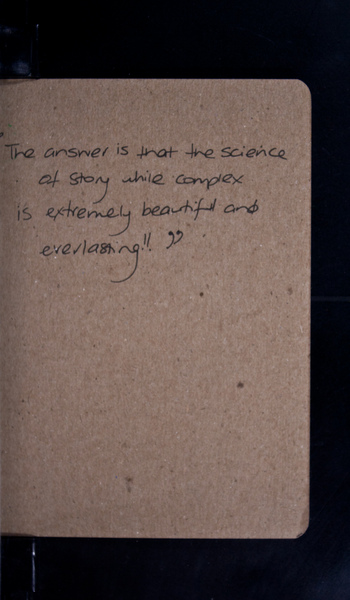 "The answer is that the science
of story while complex
is extremely beautiful and
everlasting!! "